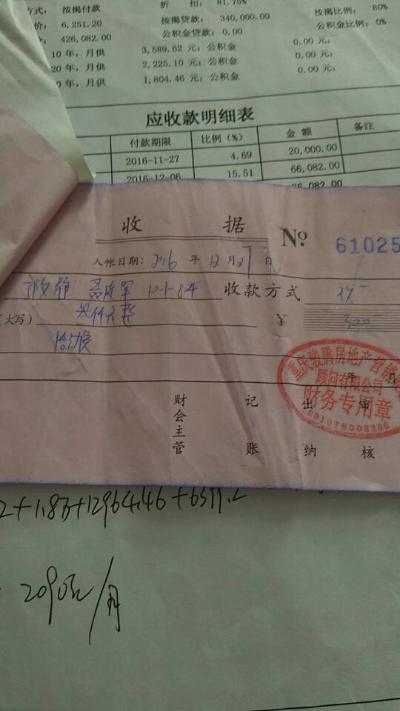 方式： 按揭付款 折 扣： 81.75% 按揭比例： 80%
价： 6,251.20 按揭贷款： 340,000.00 公积金比例： 0%
价： 426,082.00 公积金贷款： 0.00
10 年，月供 3,589.62 元；公积金 0.00 元；
20 年，月供 2,225.10 元；公积金 0.00 元；
年，月供 1,804.46 元；公积金 0.00 元；
应收款明细表
付款期限 比例（%） 金 额 备注
2016-11-27 4.69 20,000.00
2016-12-06 15.51 66,082.00
收 据
№ 61025
入帐日期：2016 年 12 月 27 日
12-1-8-4 收款方式
（大写） ￥ 320
财会主管 记账 出纳 审核
顾问有限公司
财务专用章
2+1.83+12964.46+6511.2
2090元/月